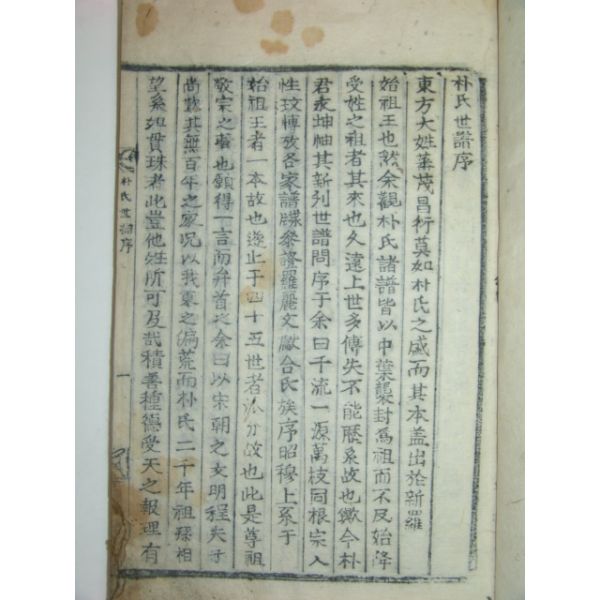 朴氏世譜序
東方大姓華茂昌衍莫如朴氏之盛而其本盖出於新羅
始祖王也然余觀朴氏諸譜皆以中葉襲封爲祖而不及始降
受姓之祖者其來也久遠上世多傳失不能歷系故也歲今朴
君永坤袖其新列世譜問序于余曰千流一源萬枝同根宗人
性玟博攷各家譜牒參證羅麗文獻合氏族序昭穆上系于
始祖王者一本故也遂止于四十五世者派分故也此是尊祖
敬宗之意也願得一言而弁首之余曰以宋朝之文明程朱子
尚歎其無百年之家况以我東之偏荒而朴氏二千年祖孫相
望系如貫珠者此豈他姓所可及哉積善種德受天之報理有
朴氏世譜序
一